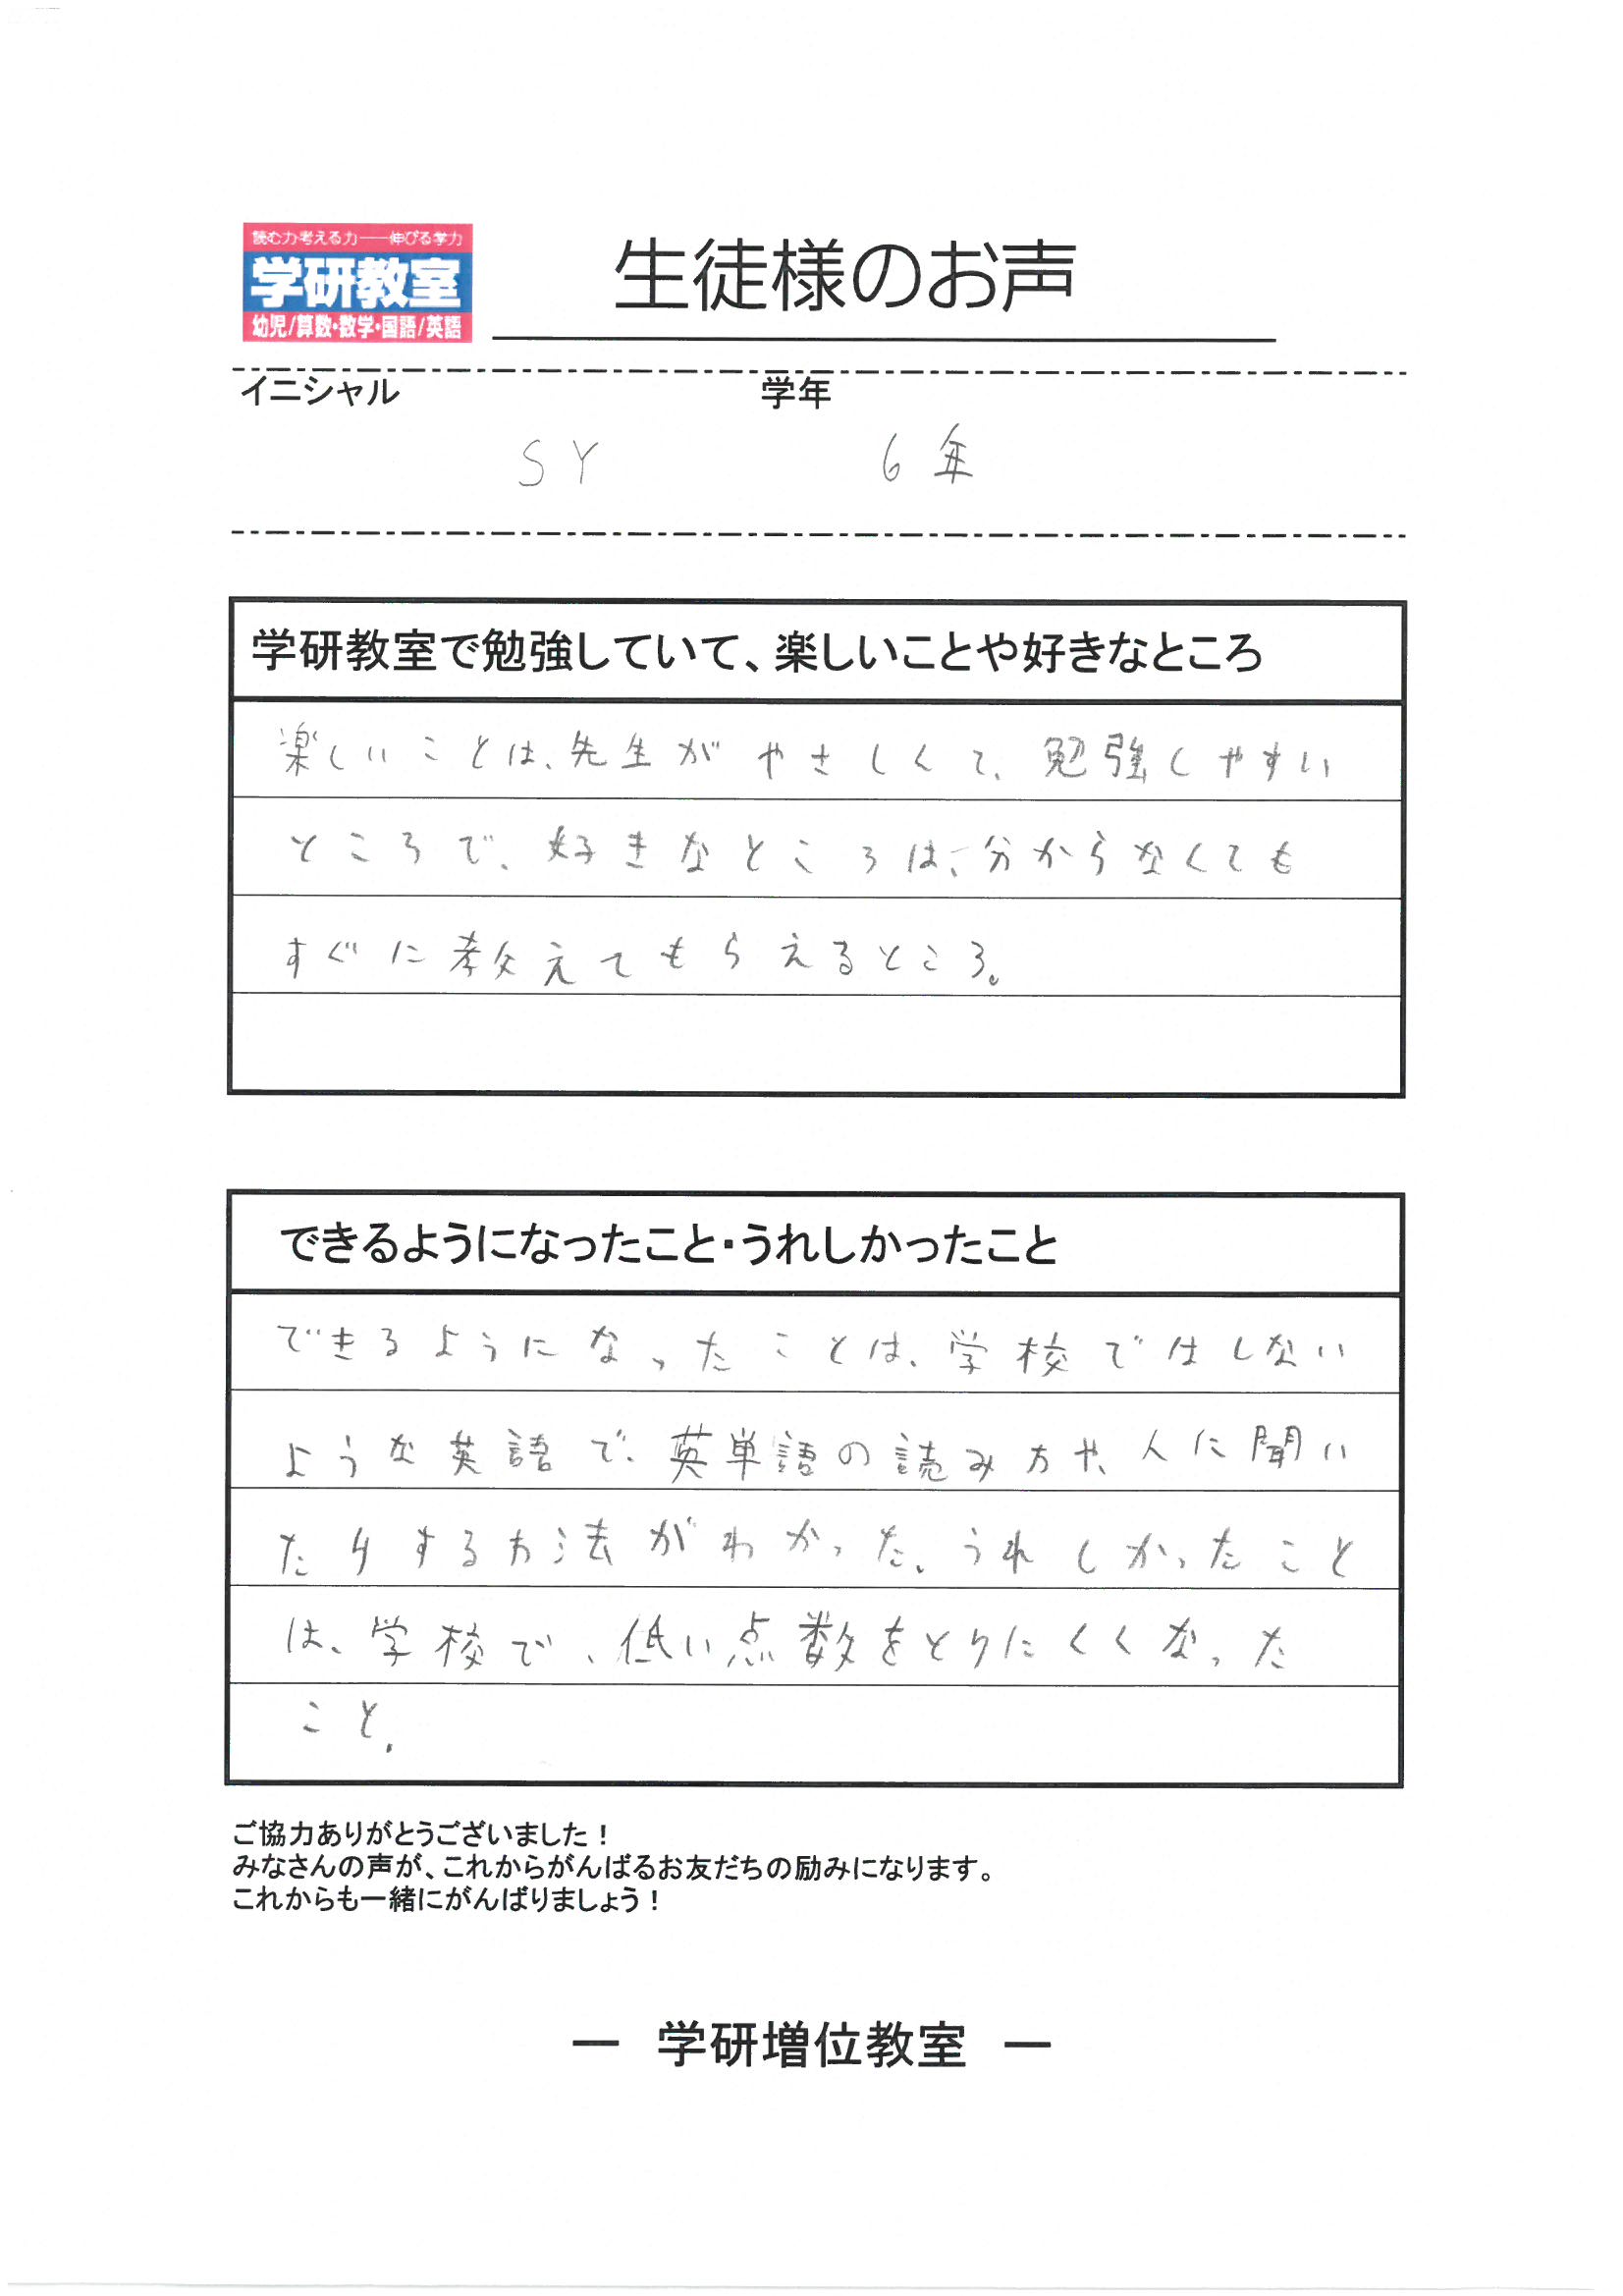 読む力・考える力――伸びる学力
学研教室
幼児/算数・数学・国語/英語
生徒様のお声
イニシャル 学年
SY 6年
学研教室で勉強していて、楽しいことや好きなところ
楽しいことは、先生がやさしくて、勉強しやすい
ところで、好きなところは、分からなくても
すぐに教えてもらえるところ。
できるようになったこと・うれしかったこと
できるようになったことは、学校ではしない
ような英語で、英単語の読み方や、人に聞い
たりする方法がわかった。うれしかったこと
は、学校で、低い点数をとりにくくなった
こと。
ご協力ありがとうございました！
みなさんの声が、これからがんばるお友だちの励みになります。
これからも一緒にがんばりましょう！
― 学研増位教室 ―